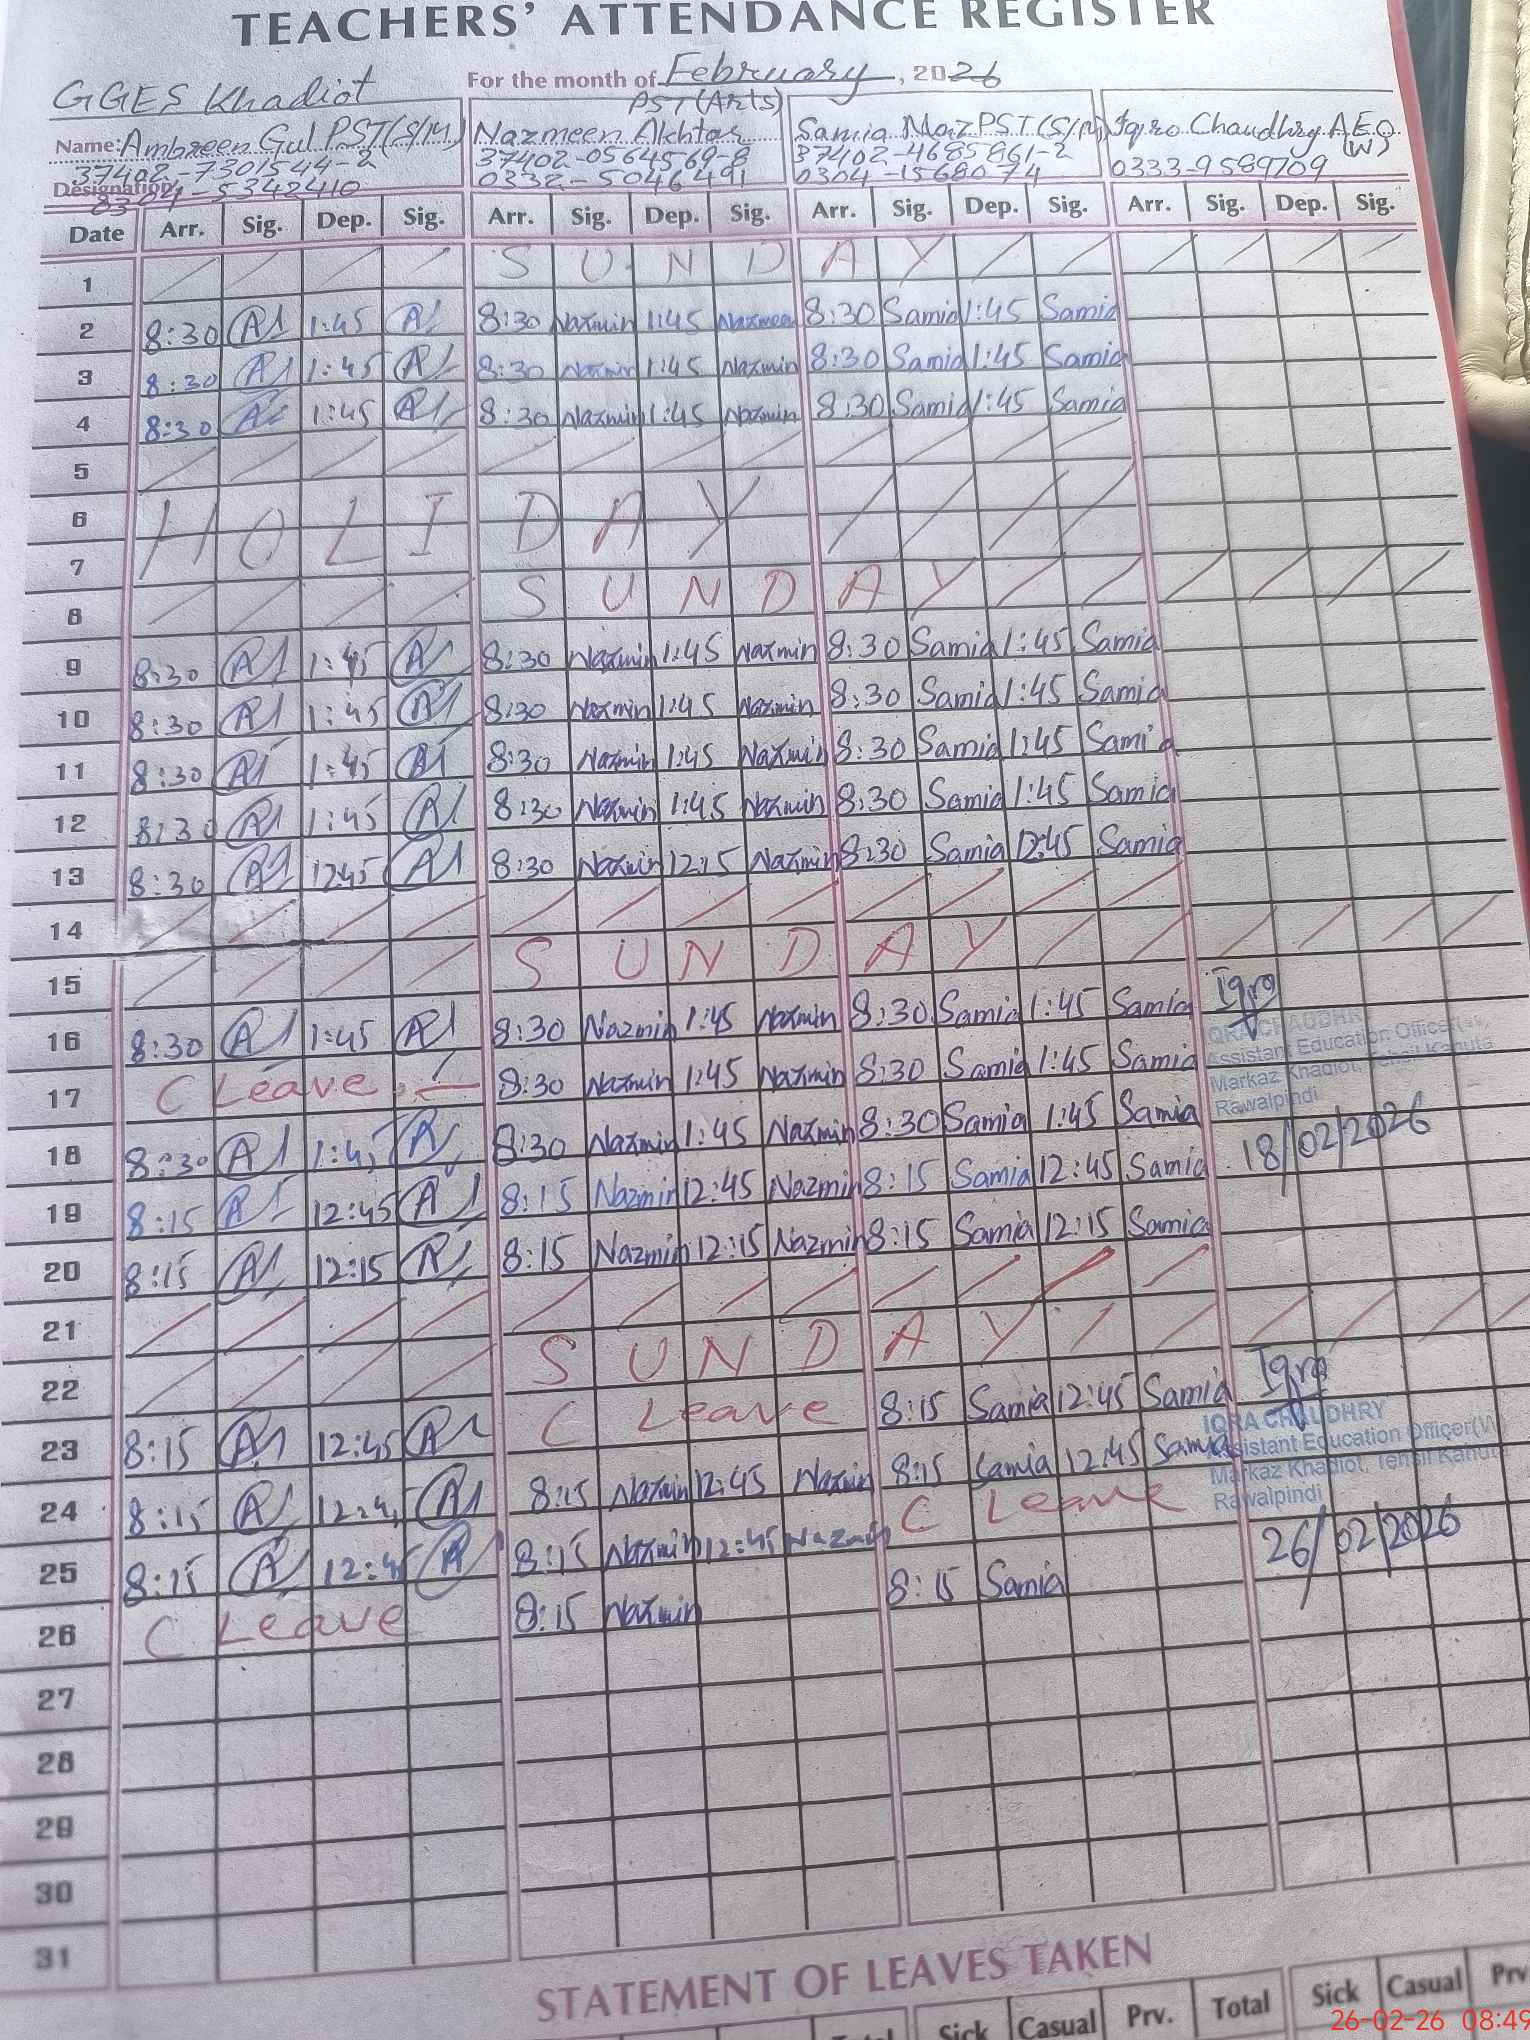 TEACHERS' ATTENDANCE REGISTER
GGES Khadiot For the month of February, 2026
Name: Ambreen Gul PST(S/M) Nazmeen Akhtar PST(Arts) Samia Moiz PST(S/M) Iqra Chaudhry A.E.O (W)
37402-7301544-2 37402-0564569-8 37402-4685861-2 0333-9589709
Designation 5342410 0332-5046491 0304-1568074
Date Arr. Sig. Dep. Sig. Arr. Sig. Dep. Sig. Arr. Sig. Dep. Sig. Arr. Sig. Dep. Sig.
1 SUNDAY
2 8:30 A 1:45 A 8:30 Nazmin 1:45 Nazmeen 8:30 Samia 1:45 Samia
3 8:30 A 1:45 A 8:30 Nazmin 1:45 Nazmin 8:30 Samia 1:45 Samia
4 8:30 A 1:45 A 8:30 Nazmin 1:45 Nazmin 8:30 Samia 1:45 Samia
5
6 HOLIDAY
7
8 SUNDAY
9 8:30 A 1:45 A 8:30 Nazmin 1:45 Nazmin 8:30 Samia 1:45 Samia
10 8:30 A 1:45 A 8:30 Nazmin 1:45 Nazmin 8:30 Samia 1:45 Samia
11 8:30 A 1:45 A 8:30 Nazmin 1:45 Nazmin 8:30 Samia 1:45 Samia
12 8:30 A 1:45 A 8:30 Nazmin 1:45 Nazmin 8:30 Samia 1:45 Samia
13 8:30 A 12:45 A 8:30 Nazmin 12:15 Nazmin 8:30 Samia 12:45 Samia
14
15 SUNDAY
16 8:30 A 1:45 A 8:30 Nazmin 1:45 Nazmin 8:30 Samia 1:45 Samia Iqra
IQRA CHAUDHRY
Assistant Education Officer
Markaz Khadiot, Tehsil Kahuta
Rawalpindi
17 C Leave 8:30 Nazmin 1:45 Nazmin 8:30 Samia 1:45 Samia
18 8:30 A 1:45 A 8:30 Nazmin 1:45 Nazmin 8:30 Samia 1:45 Samia 18/02/2026
19 8:15 A 12:45 A 8:15 Nazmin 12:45 Nazmin 8:15 Samia 12:45 Samia
20 8:15 A 12:15 A 8:15 Nazmin 12:15 Nazmin 8:15 Samia 12:15 Samia
21
22 SUNDAY
23 8:15 A 12:45 A C Leave 8:15 Samia 12:45 Samia Iqra
IQRA CHAUDHRY
Assistant Education Officer(W)
Markaz Khadiot, Tehsil Kahuta
Rawalpindi
24 8:15 A 12:45 A 8:15 Nazmin 12:45 Nazmin 8:15 Samia 12:45 Samia
25 8:15 A 12:45 A 8:15 Nazmin 12:45 Nazmin C Leave 26/02/2026
26 C Leave 8:15 Nazmin 8:15 Samia
27
28
29
30
31
STATEMENT OF LEAVES TAKEN
Sick Casual Prv. Total Sick Casual Prv
26-02-26 08:49